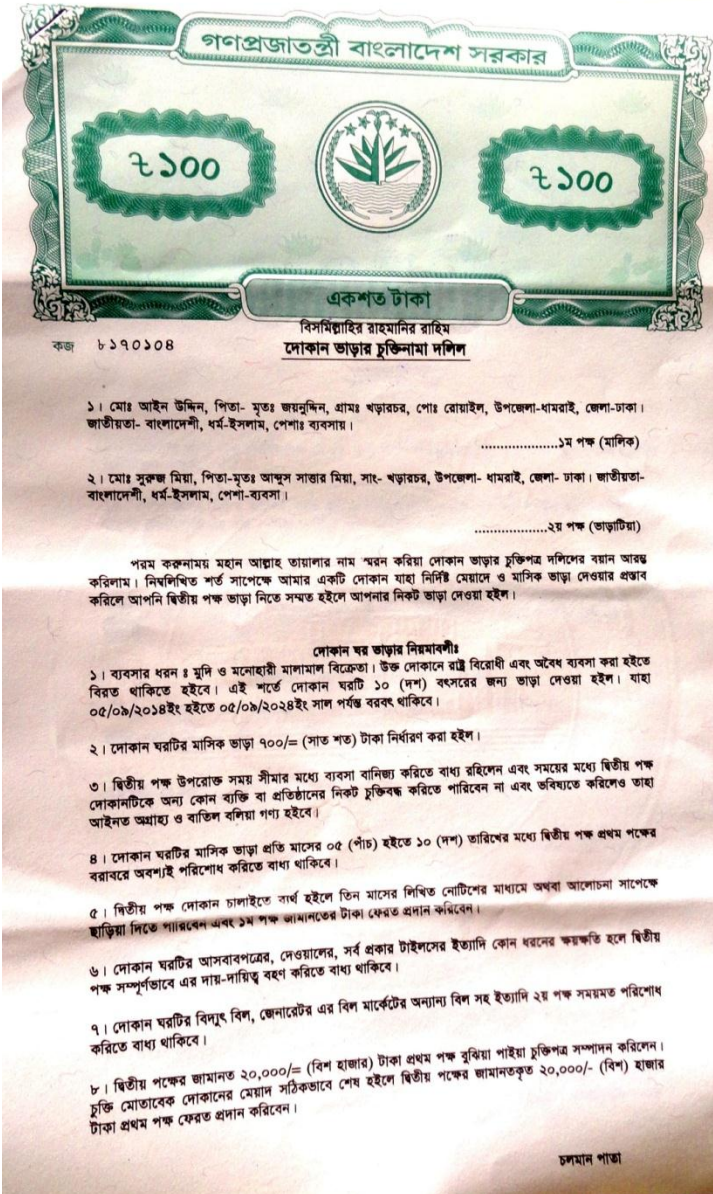 গণপ্রজাতন্ত্রী বাংলাদেশ সরকার
৳১০০
৳১০০
একশত টাকা
বিসমিল্লাহির রাহমানির রাহিম
কজ ৮১৭০১০৪
দোকান ভাড়ার চুক্তিনামা দলিল
১। মোঃ আইন উদ্দিন, পিতা- মৃতঃ জয়নুদ্দিন, গ্রামঃ খড়ারচর, পোঃ রোয়াইল, উপজেলা-ধামরাই, জেলা-ঢাকা।
জাতীয়তা- বাংলাদেশী, ধর্ম-ইসলাম, পেশাঃ ব্যবসায়।
....................১ম পক্ষ (মালিক)
২। মোঃ সুরুজ মিয়া, পিতা-মৃতঃ আব্দুস সাত্তার মিয়া, সাং- খড়ারচর, উপজেলা- ধামরাই, জেলা- ঢাকা। জাতীয়তা-
বাংলাদেশী, ধর্ম-ইসলাম, পেশা-ব্যবসা।
...................২য় পক্ষ (ভাড়াটিয়া)
পরম করুনাময় মহান আল্লাহ তায়ালার নাম স্মরন করিয়া দোকান ভাড়ার চুক্তিপত্র দলিলের বয়ান আরম্ভ
করিলাম। নিম্নলিখিত শর্ত সাপেক্ষে আমার একটি দোকান যাহা নির্দিষ্ট মেয়াদে ও মাসিক ভাড়া দেওয়ার প্রস্তাব
করিলে আপনি দ্বিতীয় পক্ষ ভাড়া নিতে সম্মত হইলে আপনার নিকট ভাড়া দেওয়া হইল।
দোকান ঘর ভাড়ার নিয়মাবলীঃ
১। ব্যবসার ধরন ঃ মুদি ও মনোহারী মালামাল বিক্রেতা। উক্ত দোকানে রাষ্ট্র বিরোধী এবং অবৈধ ব্যবসা করা হইতে
বিরত থাকিতে হইবে। এই শর্তে দোকান ঘরটি ১০ (দশ) বৎসরের জন্য ভাড়া দেওয়া হইল। যাহা
০৫/০৯/২০১৪ইং হইতে ০৫/০৯/২০২৪ইং সাল পর্যন্ত বরবৎ থাকিবে।
২। দোকান ঘরটির মাসিক ভাড়া ৭০০/= (সাত শত) টাকা নির্ধারণ করা হইল।
৩। দ্বিতীয় পক্ষ উপরোক্ত সময় সীমার মধ্যে ব্যবসা বানিজ্য করিতে বাধ্য রহিলেন এবং সময়ের মধ্যে দ্বিতীয় পক্ষ
দোকানটিকে অন্য কোন ব্যক্তি বা প্রতিষ্ঠানের নিকট চুক্তিবদ্ধ করিতে পারিবেন না এবং ভবিষ্যতে করিলেও তাহা
আইনত অগ্রাহ্য ও বাতিল বলিয়া গণ্য হইবে।
৪। দোকান ঘরটির মাসিক ভাড়া প্রতি মাসের ০৫ (পাঁচ) হইতে ১০ (দশ) তারিখের মধ্যে দ্বিতীয় পক্ষ প্রথম পক্ষের
বরাবরে অবশ্যই পরিশোধ করিতে বাধ্য থাকিবে।
৫। দ্বিতীয় পক্ষ দোকান চালাইতে ব্যর্থ হইলে তিন মাসের লিখিত নোটিশের মাধ্যমে অথবা আলোচনা সাপেক্ষে
ছাড়িয়া দিতে পারিবেন এবং ১ম পক্ষ জামানতের টাকা ফেরত প্রদান করিবেন।
৬। দোকান ঘরটির আসবাবপত্রের, দেওয়ালের, সর্ব প্রকার টাইলসের ইত্যাদি কোন ধরনের ক্ষয়ক্ষতি হলে দ্বিতীয়
পক্ষ সম্পূর্ণভাবে এর দায়-দায়িত্ব বহণ করিতে বাধ্য থাকিবে।
৭। দোকান ঘরটির বিদ্যুৎ বিল, জেনারেটর এর বিল মার্কেটের অন্যান্য বিল সহ ইত্যাদি ২য় পক্ষ সময়মত পরিশোধ
করিতে বাধ্য থাকিবে।
৮। দ্বিতীয় পক্ষের জামানত ২০,০০০/= (বিশ হাজার) টাকা প্রথম পক্ষ বুঝিয়া পাইয়া চুক্তিপত্র সম্পাদন করিলেন।
চুক্তি মোতাবেক দোকানের মেয়াদ সঠিকভাবে শেষ হইলে দ্বিতীয় পক্ষের জামানতকৃত ২০,০০০/- (বিশ) হাজার
টাকা প্রথম পক্ষ ফেরত প্রদান করিবেন।
চলমান পাতা